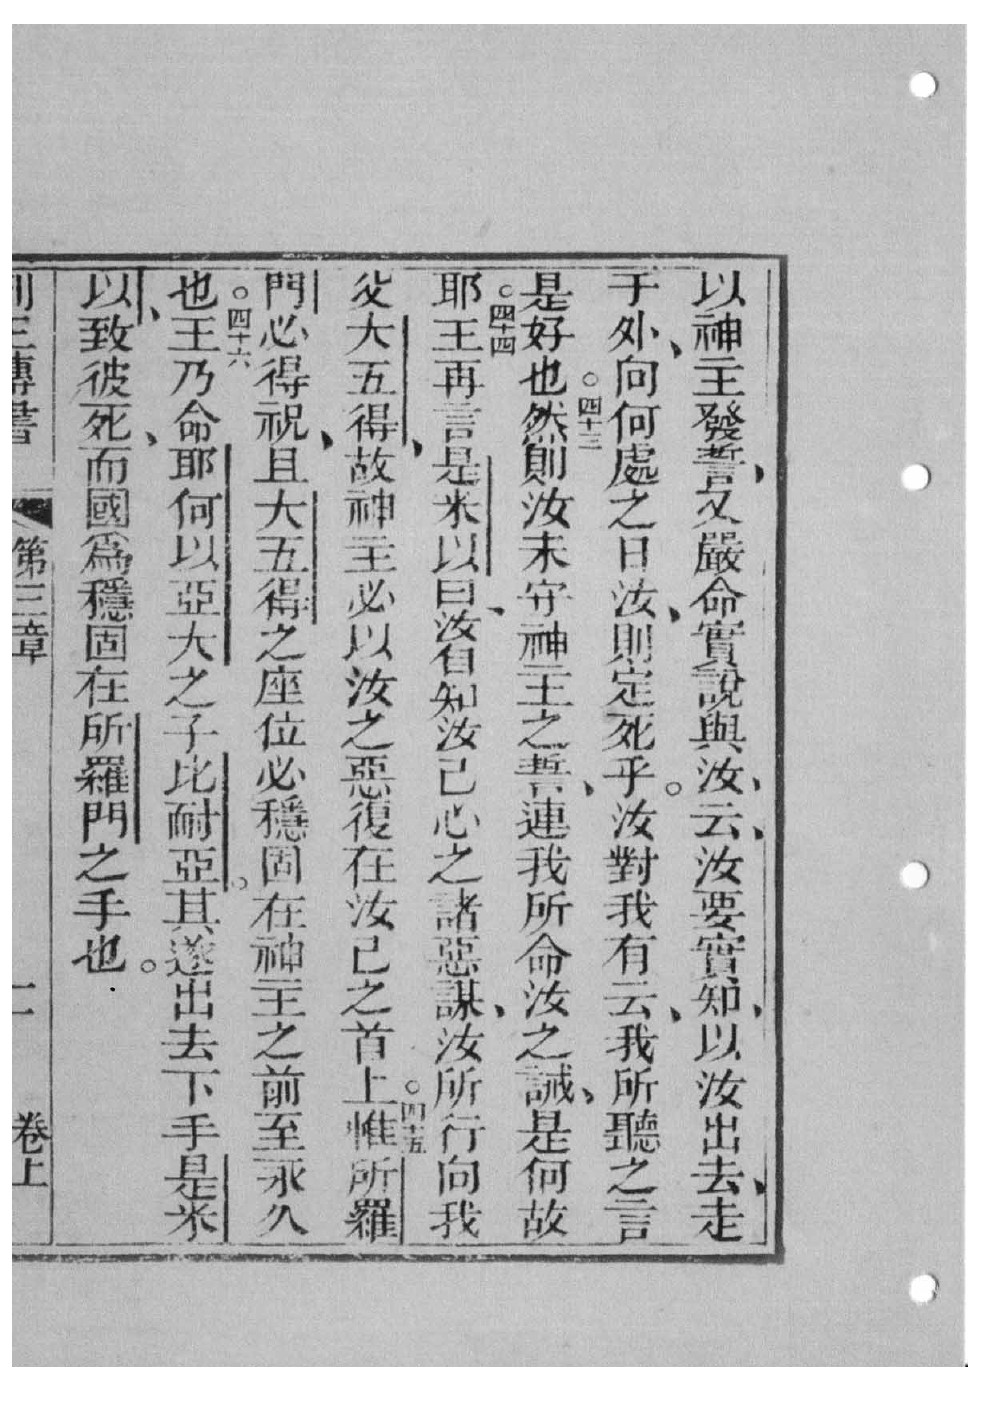 以神主發誓、又嚴命實說與汝、云、汝要實知、以汝出去、走
于外、向何處之日汝、則定死乎。汝對我有云、我所聽之言
是好也○四十三然則汝未守神主之誓、連我所命汝之誡、是何故
耶○四十四王再言是米以曰、汝自知汝己心之諸惡謀、汝所行向我
父大五得、故神主必以汝之惡復在汝己之首上○四十五惟所羅
門必得祝、且大五得之座位必穩固在神主之前至永久
也○四十六王乃命耶何以亞大之子比耐亞。其遂出去下手是米
以、致彼死、而國為穩固在所羅門之手也。
列王傳書 第三章 二 卷上